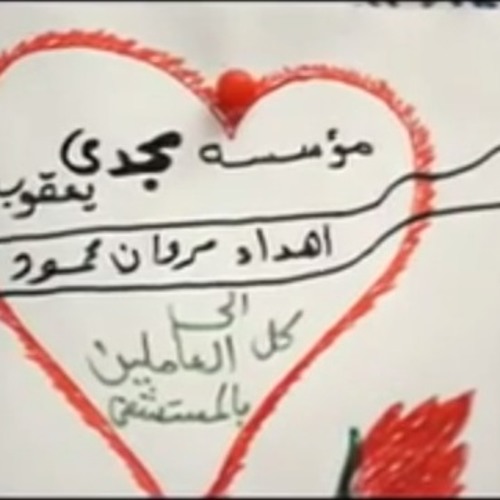 مؤسسه مجدى
يعقوب
اهداء مروان محمود
الى
كل العاملين
بالمستشفى